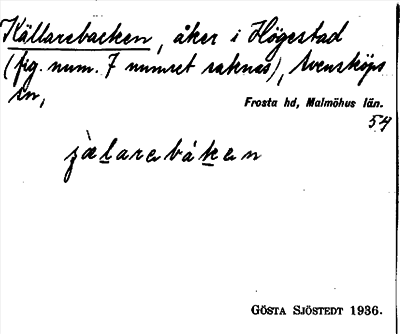 Källarebacken, åker i Högestad
(fig. num. 7 numret saknas), Svensköps
sn,
Frosta hd, Malmöhus län.
54
GÖSTA SJÖSTEDT 1936.